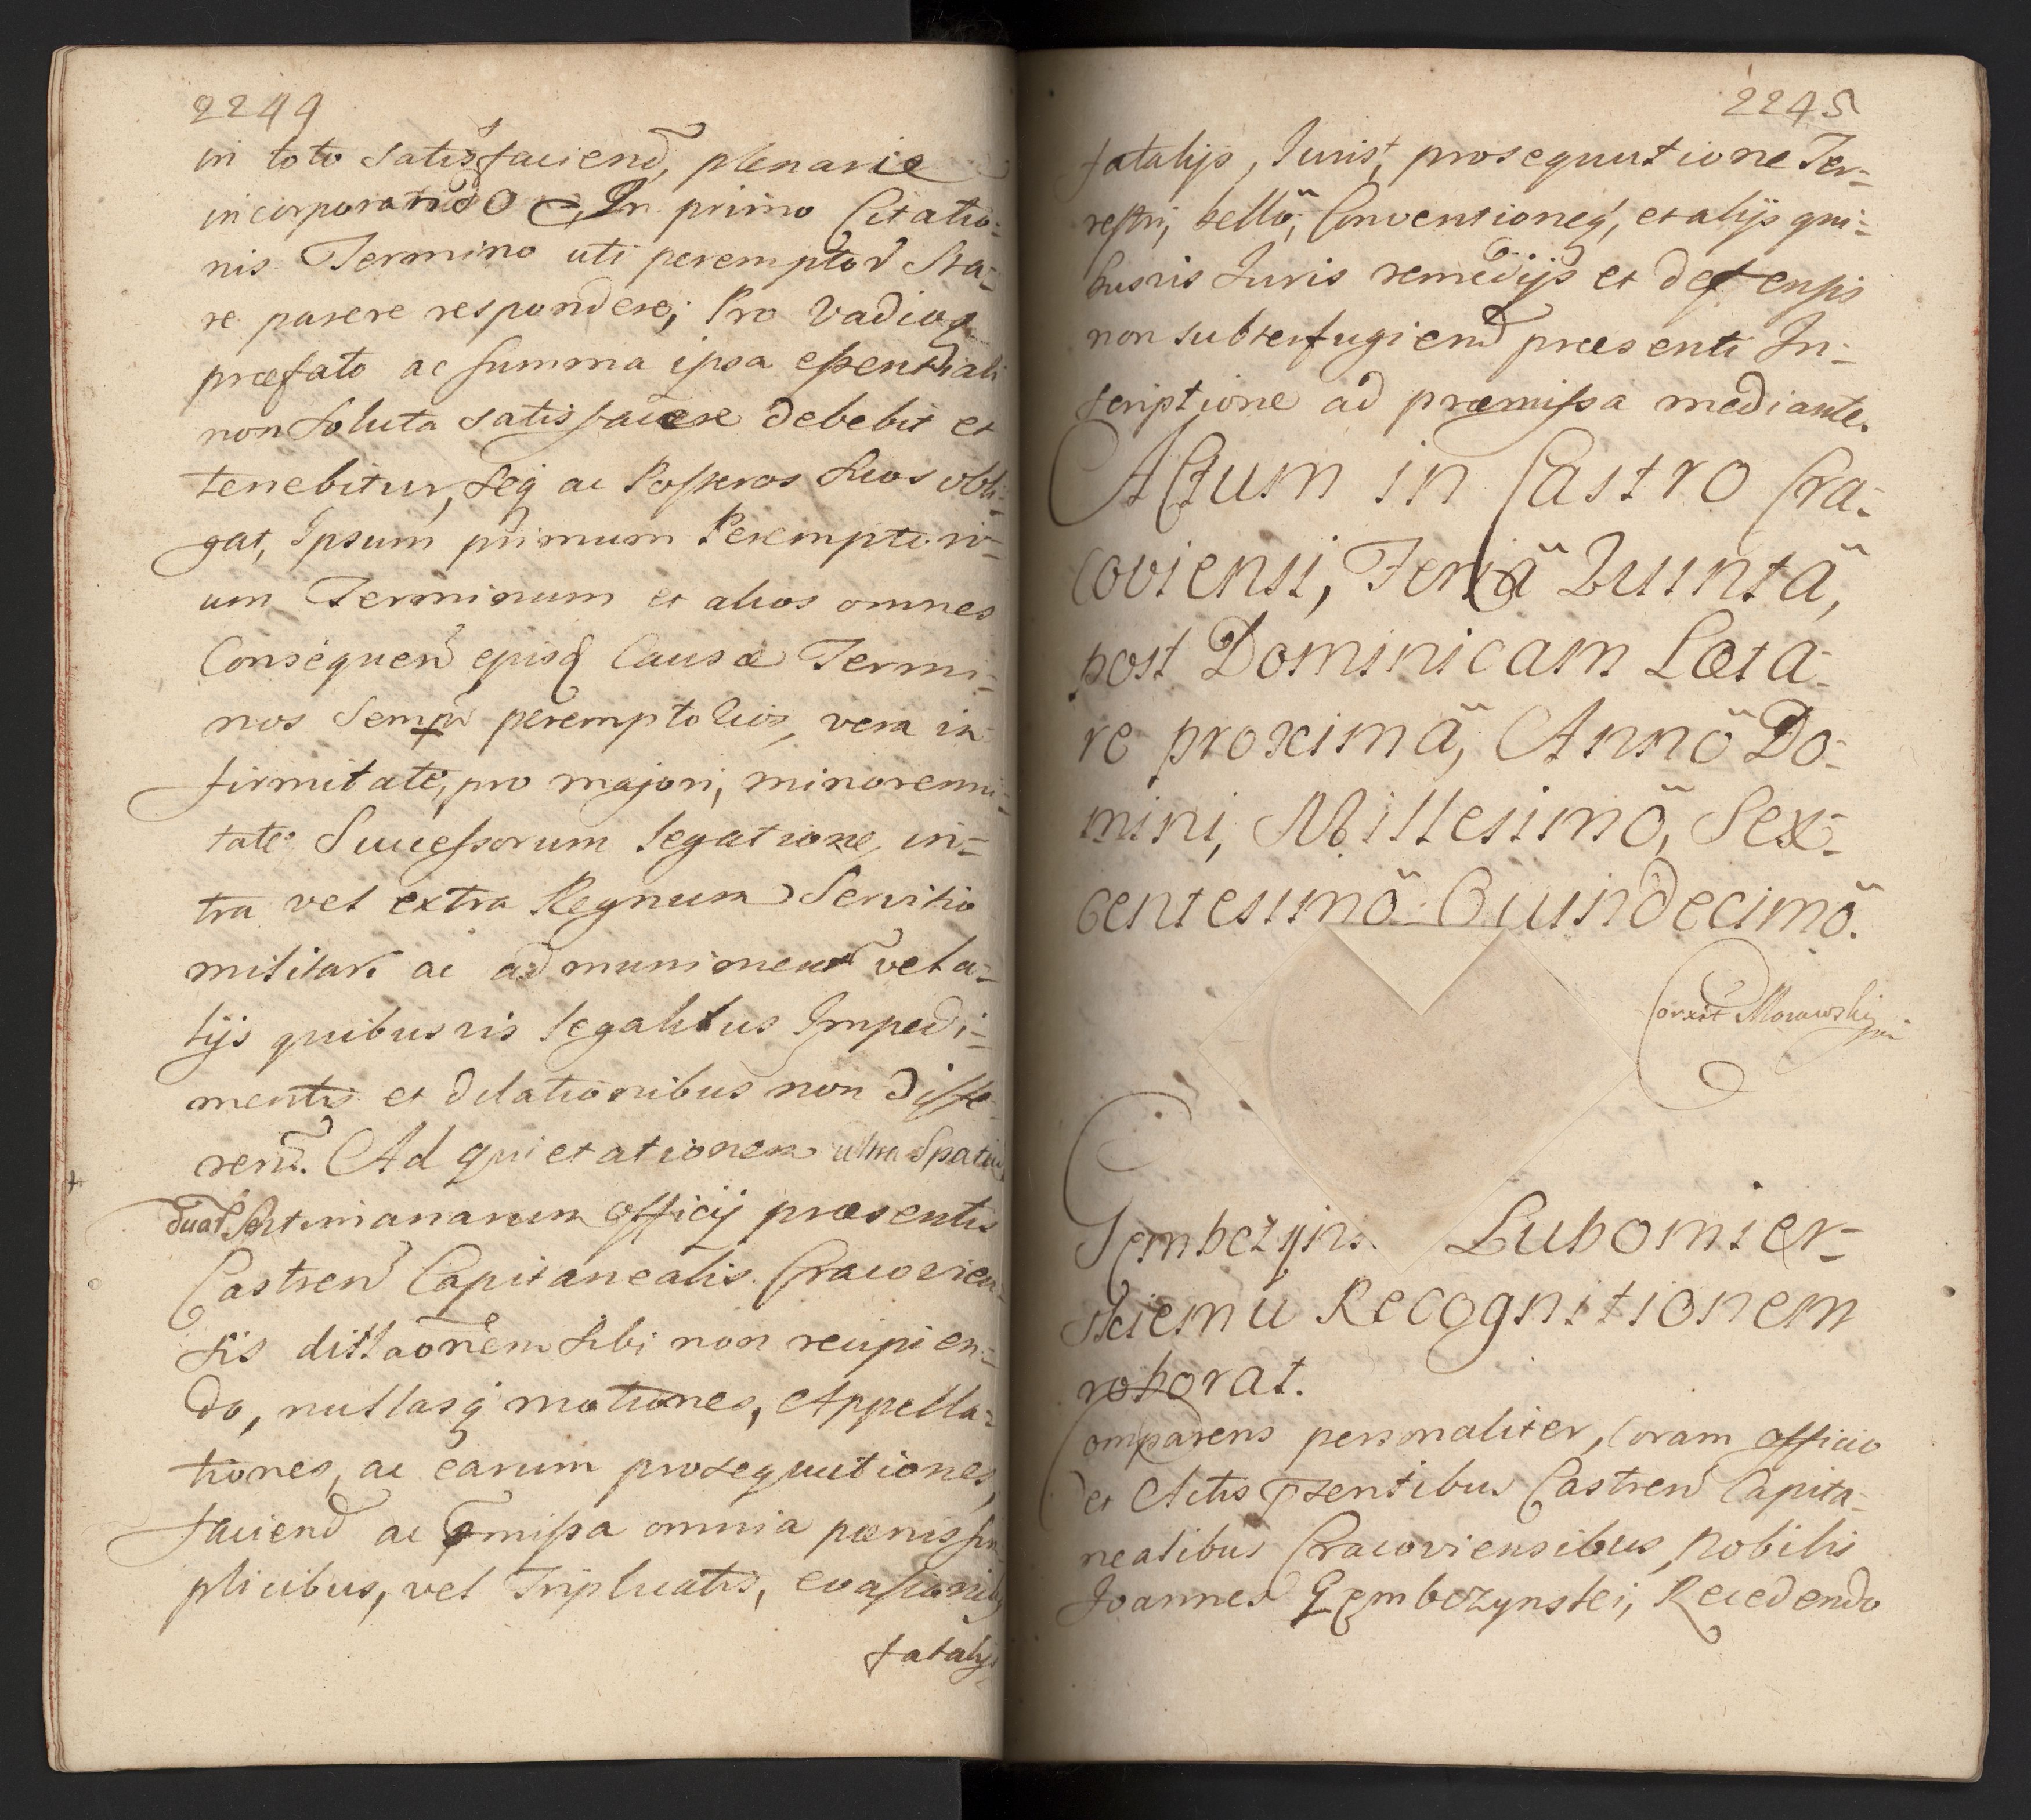 2244
in toto satisfaciend, plenarie
incorporando In primo Citatio-
nis Termino uti peremptor Sta-
re parere respondere; Pro Vadioq
præfato ac summa ipsa essentiali
non soluta satisfacere debebit et
tenebitur, seq ac Posteros suos obli-
gat, Ipsum primum Peremptori-
um Terminum et alios omnes
Consequen ejusq Causæ Termi-
nos semp peremptorios, vera in-
firmitate, pro majori, minorenni-
tate Successorum legatione, in-
tra vel extra Regnum Servitio
militari ac ad munimen vel a-
lijs quibusvis legalibus Impedi-
mentis et dilationibus non diffe-
rend. Ad quietationem ultra Spatiu
duar Septimanarum officij præsentis
Castren Capitanealis Cracovien-
sis dillaonem sibi non recipien-
do, nullasq motiones, Appella-
tiones, ac earum prosequutiones,
faciend ac pmissa omnia pænis sim-
plicibus, vel Triplicatis, evasionib
fatalijs
2245
fatalijs, Jurist, prosequutione Ter-
restri, bellö, Conventioneq, et alijs qui-
busvis Juris remedijs et defensis
non subterfugiend præsenti In-
scriptione ad præmissa mediante.
Actum in Castro Cra-
coviensi, Feriä Quintä,
post Dominicam Læta-
re proximä, Annö Do-
mini, Millesimö, Sex-
centesimö Quindecimö.
Corxit Morawski
mp
Gembczyns Lubomier-
skiemu Recognitionem
roborat.
Comparens personaliter, Coram officio
et Actis psentibus Castren Capita-
nealibus Cracoviensibus, Nobilis
Joannes Gembczynskei, Recedendo